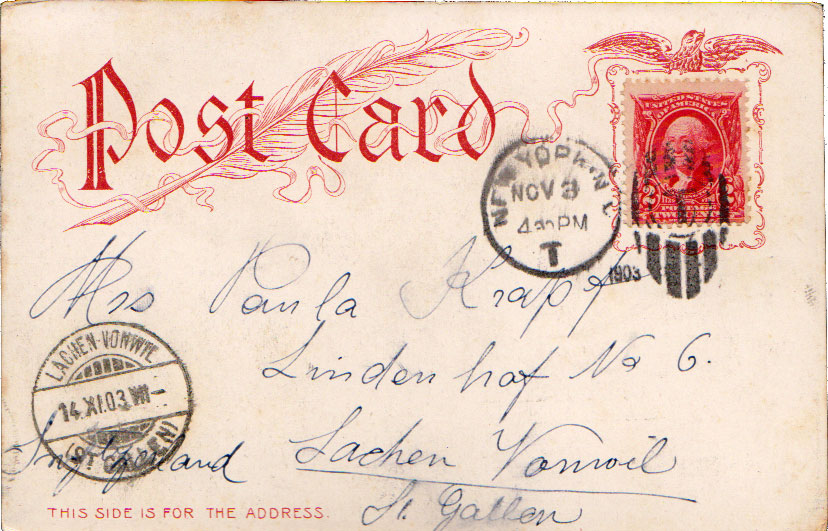 Post Card
UNITED STATES
OF AMERICA
2 2
POSTAGE
NEW YORK, N.Y.
NOV 3
4-30 PM
T
1903
Mrs Paula Krapf
Lindenhof No 6.
LACHEN-VONWIL
14.XI.03.VII-
(ST. GALLEN)
Lachen Vonwil
St. Gallen
THIS SIDE IS FOR THE ADDRESS.